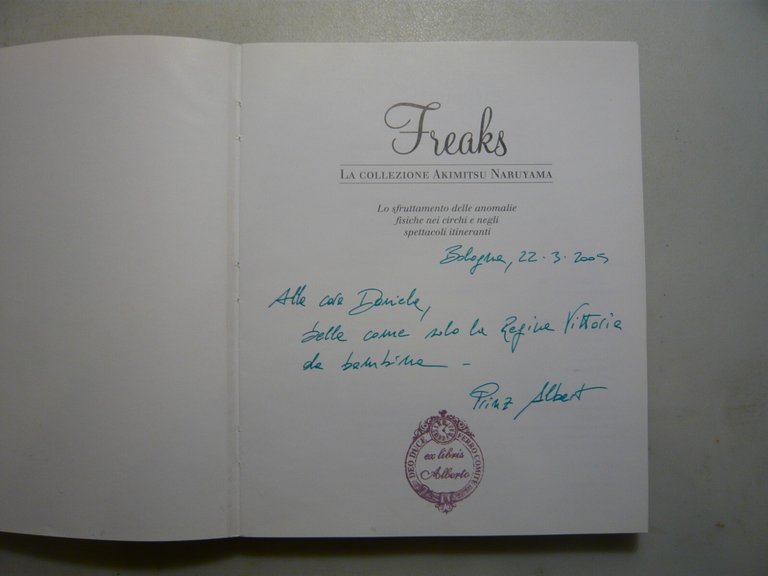 Freaks
LA COLLEZIONE AKIMITSU NARUYAMA
Lo sfruttamento delle anomalie
fisiche nei circhi e negli
spettacoli itineranti
Bologna, 22.3.2005
Alla cara Daniela,
bella come solo la Regina Vittoria
da bambina –
Prinz Albert
DEO DUCE FERRO COMITE
ex libris
Alberto